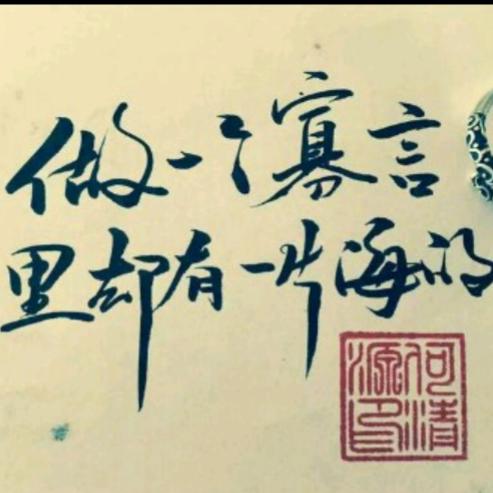 做一个寡言
里却有一片海的
何清
源印